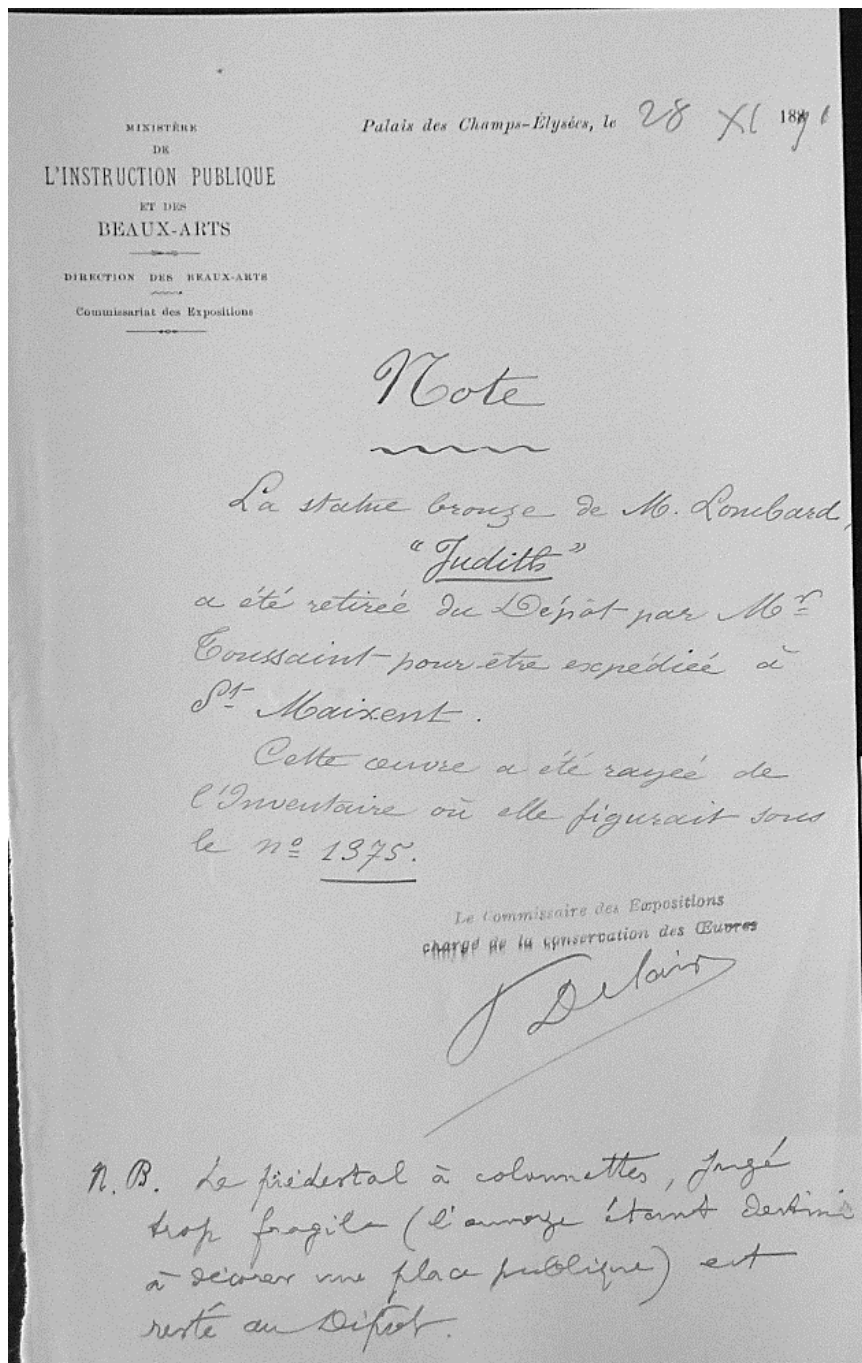 MINISTÈRE
DE
L'INSTRUCTION PUBLIQUE
ET DES
BEAUX-ARTS
DIRECTION DES BEAUX-ARTS
Commissariat des Expositions
Palais des Champs-Élysées, le 28 XI 189
Note
La statue bronze de M. Lombard,
"Judith"
a été retirée du Dépôt par Mr
Toussaint pour être expédiée à
St Maixent.
Cette œuvre a été rayée de
l'Inventaire où elle figurait sous
le nº 1375.
Le Commissaire des Expositions
chargé de la conservation des Œuvres
Delair
N. B. Le piédestal à colonnettes, jugé
trop fragile (l'ouvrage étant destiné
à décorer une place publique) est
resté au Dépôt.